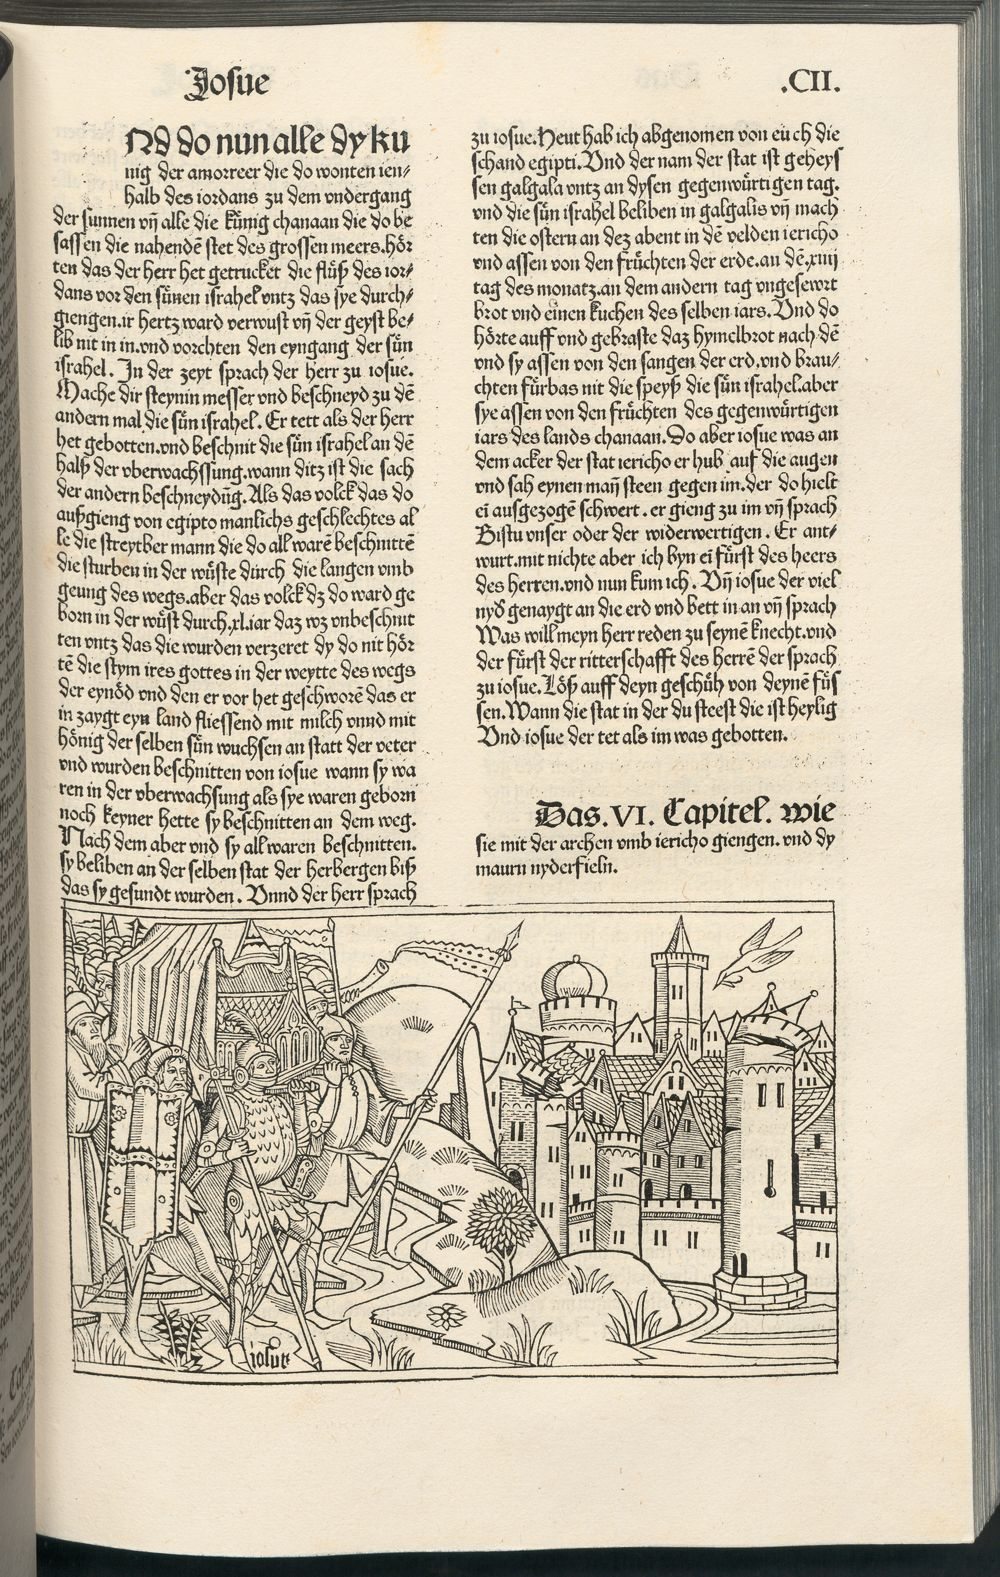 Josue
.CII.
Nd do nun alle dy ku
nig der amorreer die do wonten ien⸗
halb des iordans zu dem vndergang
der sunnen vñ alle die kűnig chanaan die do be
sassen die nahendē stet des grossen meers. hör
ten das der herr het getrucket die flüß des ior⸗
dans vor den sűnen israhel vntz das sye durch⸗
giengen. ir hertz ward verwust vñ der geyst be⸗
lib nit in in. vnd vorchten den eyngang der sűn
israhel. In der zeyt sprach der herr zu iosue.
Mache dir steynin messer vnd beschneyd zu dē
andern mal die sűn israhel. Er tett als der herr
het gebotten. vnd beschnit die sűn israhel an dē
halß der vberwachssung. wann ditz ist die sach
der andern beschneydūg. Als das volck das do
außgieng von egipto manlichs geschlechtes al
le die streytber mann die do all warē beschnittē
die sturben in der wüste durch die langen vmb
geung des wegs. aber das volck dz do ward ge
born in der wüst durch .xl. iar daz wz vnbeschnit
ten vntz das die wurden verzeret dy do nit hör
tē die stym ires gottes in der weytte des wegs
der eynöd vnd den er vor het geschworē das er
in zaygt eyn land fliessend mit milch vnnd mit
hönig der selben sűn wuchsen an statt der veter
vnd wurden beschnitten von iosue wann sy wa
ren in der vberwachsung als sye waren geborn
noch keyner hette sy beschnitten an dem weg.
Nach dem aber vnd sy all waren beschnitten.
sy beliben an der selben stat der herbergen biß
das sy gesundt wurden. Vnnd der herr sprach
zu iosue. Heut hab ich abgenomen von eu ch die
schand egipti. Vnd der nam der stat ist geheys
sen galgala vntz an dysen gegenwürtigen tag.
vnd die sűn israhel beliben in galgalis vñ mach
ten die ostern an dez abent in dē velden iericho
vnd assen von den früchten der erde. an dē .xiiij
tag des monatz. an dem andern tag vngesewrt
brot vnd einen kuchen des selben iars. Vnd do
hörte auff vnd gebraste daz hymelbrot nach dē
vnd sy assen von den sangen der erd. vnd brau⸗
chten fürbas nit die speyß die sűn israhel. aber
sye assen von den früchten des gegenwürtigen
iars des lands chanaan. Do aber iosue was an
dem acker der stat iericho er hub auf die augen
vnd sah eynen mañ steen gegen im. der do hielt
ei ausgezogē schwert. er gieng zu im vñ sprach
Bistu vnser oder der widerwertigen. Er ant⸗
wurt. mit nichte aber ich byn ei fürst des heers
des herren. vnd nun kum ich. Vñ iosue der viel
nyd genaygt an die erd vnd bett in an vñ sprach
Was will meyn herr reden zu seynē knecht. vnd
der fürst der ritterschafft des herrē der sprach
zu iosue. Löß auff deyn geschüh von deynē füs
sen. Wann die stat in der du steest die ist heylig
Vnd iosue der tet als im was gebotten.
Das .VI. Capitel. wie
sie mit der archen vmb iericho giengen. vnd dy
maurn nyderfieln.
iosue